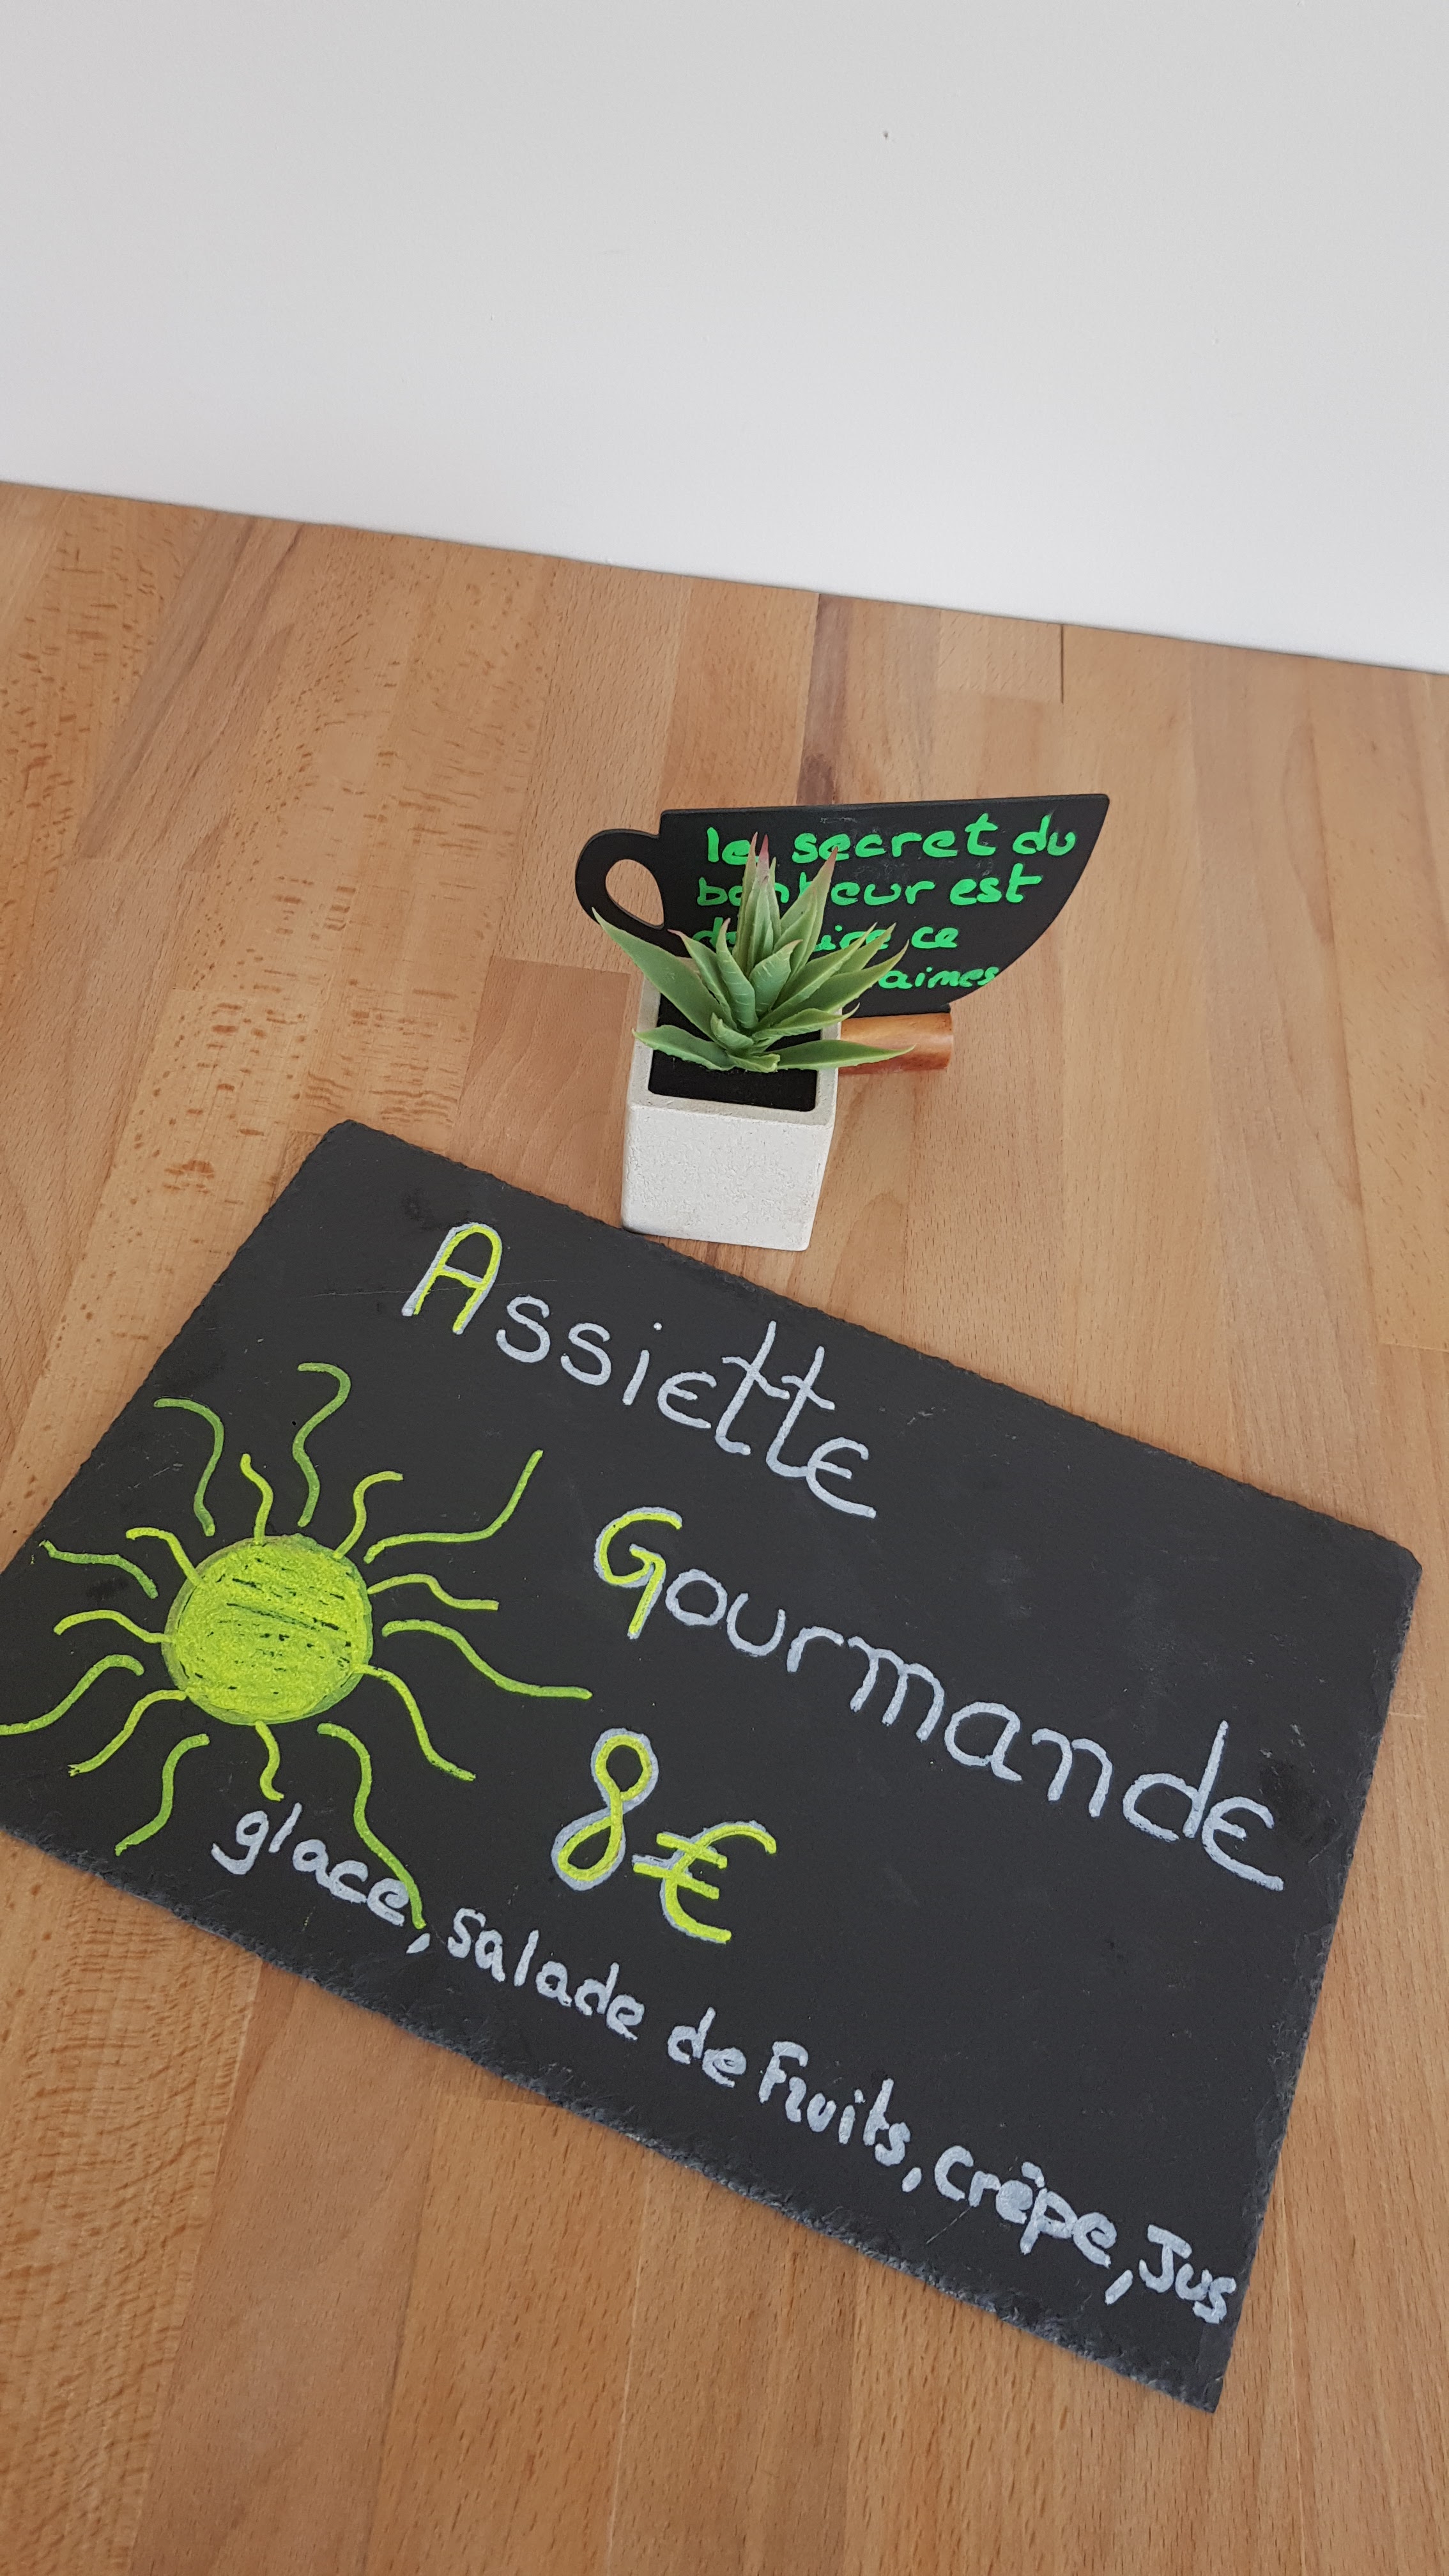 le secret du
bonheur est
ce
aimes
Assiette
Gourmande
8€
glace, salade de Fruits, Crêpe, Jus